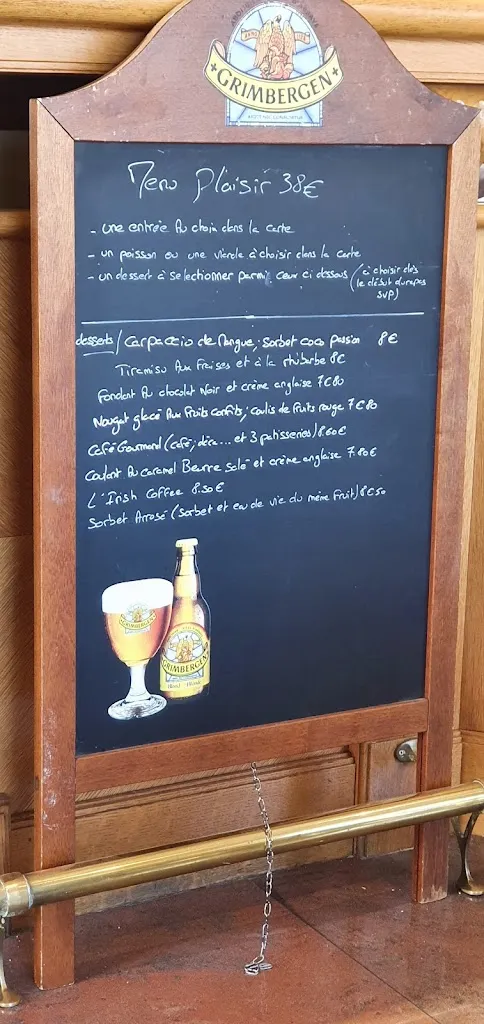 GRIMBERGEN
Menu Plaisir 38€
- une entrée Au choix dans la carte
- un poisson ou une viande à choisir dans la carte
- un dessert à selectionner parmi ceux ci dessous (à choisir dès
le début du repas
SVP)
desserts / Carpaccio de Mangue, sorbet coco passion 8€
Tiramisu Aux Fraises et à la rhubarbe 8€
Fondant Au chocolat Noir et crème anglaise 7€80
Nougat glacé Aux Fruits confits, coulis de fruits rouge 7€80
Café Gourmand (café, déca... et 3 patisseries) 8.60€
Coulant Au caramel Beurre Salé et crème anglaise 7.80€
L'Irish Coffee 8.50€
Sorbet Arrosé (sorbet et eau de vie du même fruit) 8€50
GRIMBERGEN
GRIMBERGEN